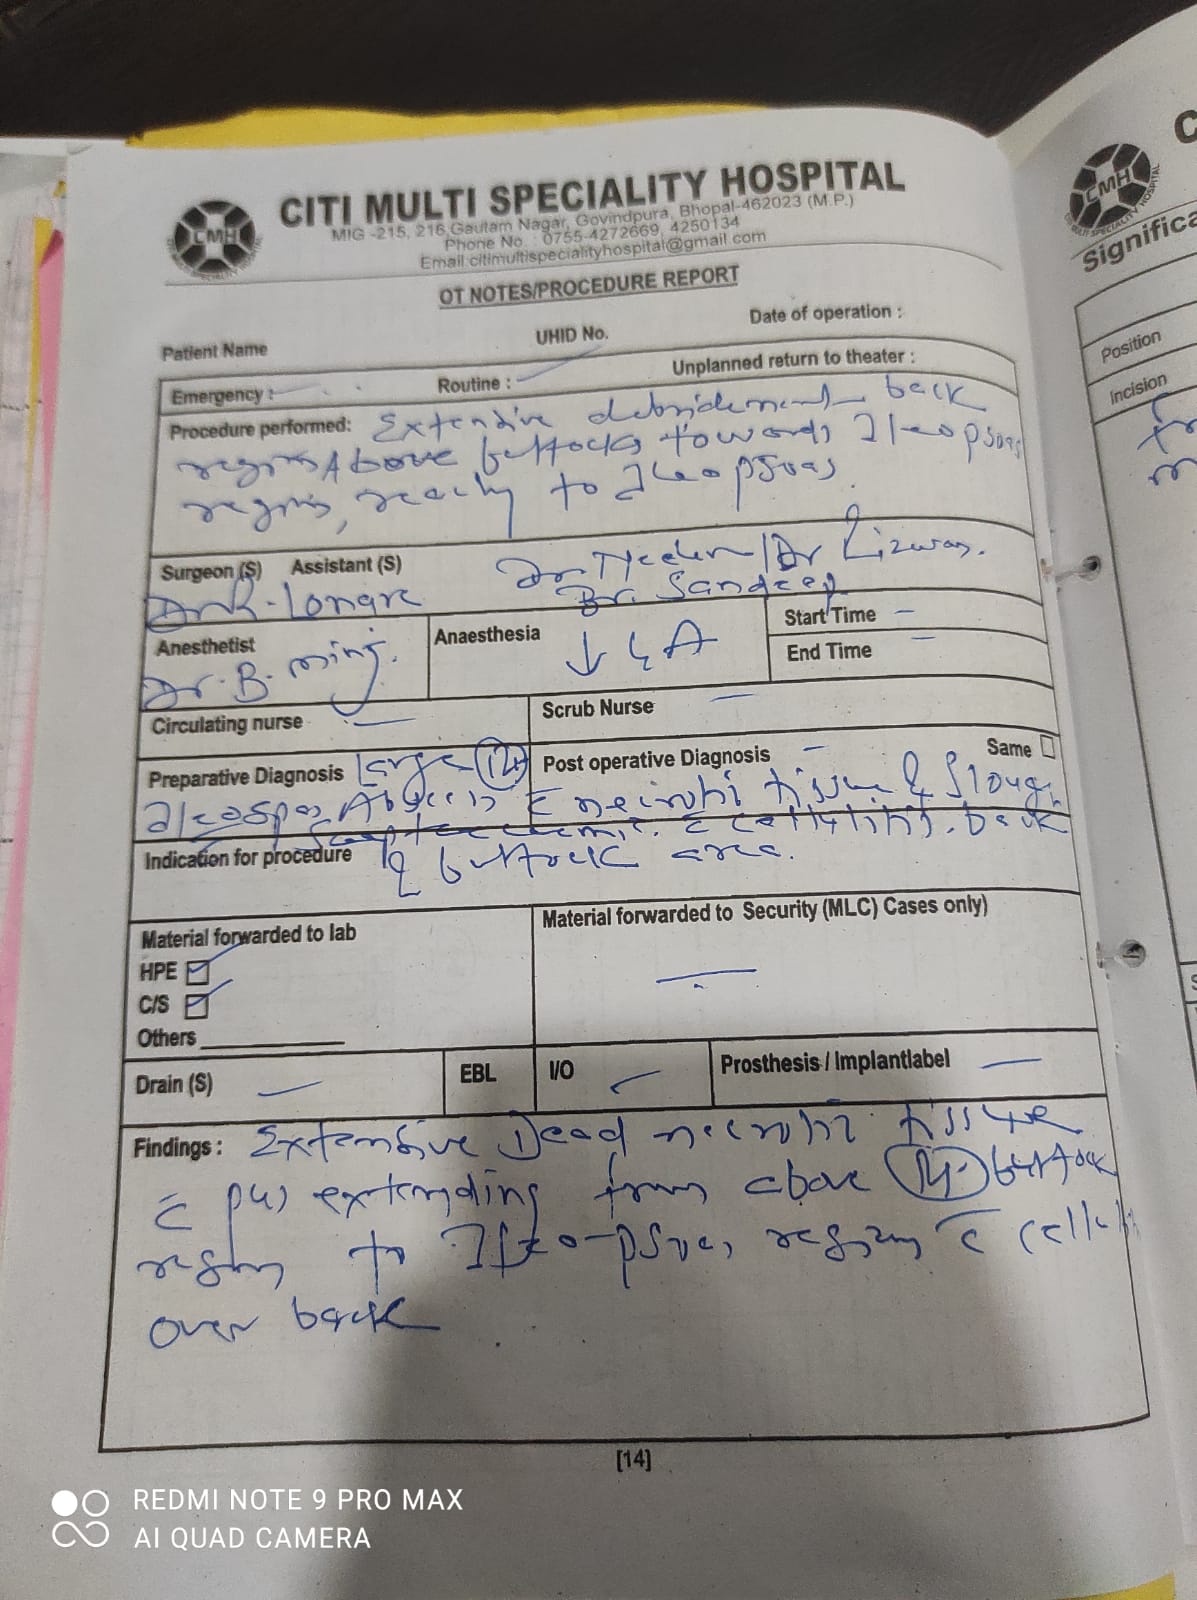 CITI MULTI SPECIALITY HOSPITAL
MIG -215, 216, Gautam Nagar, Govindpura, Bhopal-462023 (M.P.)
Phone No. : 0755-4272669, 4250134
Email:citimultispecialityhospital@gmail.com
CMH
OT NOTES/PROCEDURE REPORT
Patient Name UHID No. Date of operation :
Emergency : Routine : Unplanned return to theater :
Procedure performed: Extensive debridement back
region Above buttocks towards Ileopsoas
region, reaching to Ileopsoas.
Surgeon (S) Assistant (S) Dr. /Dr Rizwan.
Longre Br. Sandeep
Anesthetist Anaesthesia ↓ GA Start Time –
Dr. B. End Time –
Circulating nurse – Scrub Nurse –
Preparative Diagnosis large Post operative Diagnosis – Same
Abscess c̄ necrotic tissue & slough
c̄ cellulitis back
Indication for procedure & buttock area.
Material forwarded to lab Material forwarded to Security (MLC) Cases only)
HPE
C/S
Others
Drain (S) – EBL I/O Prosthesis / Implantlabel –
Findings : Extensive Dead necrotic tissue
c̄ pus extending from above buttock
region to Ileo-psoas region c̄
over back
[14]
CMH
Significa
Position
Incision
REDMI NOTE 9 PRO MAX
AI QUAD CAMERA